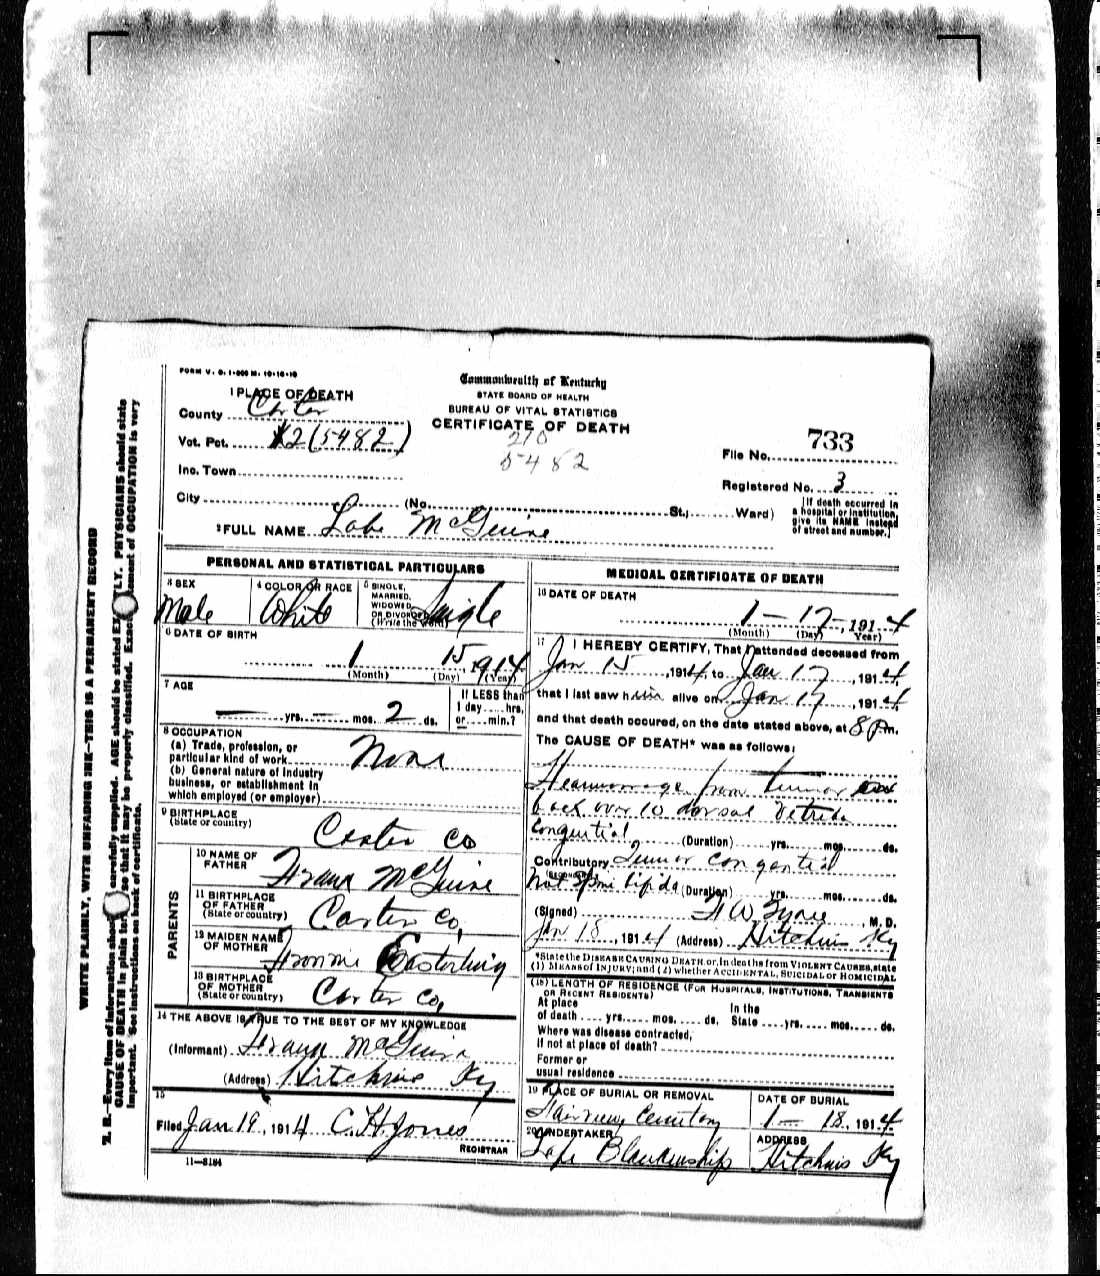 FORM V. S. 1-500 M. 10-16-10
1 PLACE OF DEATH
County Carter
Vot. Pct. #2 (5482)
Inc. Town
City (No. St.; Ward)
Commonwealth of Kentucky
STATE BOARD OF HEALTH
BUREAU OF VITAL STATISTICS
CERTIFICATE OF DEATH
210
5482
733
File No.
Registered No. 3
[If death occurred in a hospital or institution, give its NAME instead of street and number.]
2 FULL NAME Labe McGuire
PERSONAL AND STATISTICAL PARTICULARS
3 SEX Male
4 COLOR OR RACE White
5 SINGLE, MARRIED, WIDOWED OR DIVORCED (Write the word) Single
6 DATE OF BIRTH
1 15, 1914
(Month) (Day) (Year)
7 AGE
— yrs. — mos. 2 ds.
If LESS than 1 day ... hrs, or ... min.?
8 OCCUPATION
(a) Trade, profession, or particular kind of work None
(b) General nature of industry business, or establishment in which employed (or employer)
9 BIRTHPLACE (State or country) Carter Co
PARENTS
10 NAME OF FATHER Frank McGuire
11 BIRTHPLACE OF FATHER (State or country) Carter Co,
12 MAIDEN NAME OF MOTHER Easterling
13 BIRTHPLACE OF MOTHER (State or country) Carter Co,
14 THE ABOVE IS TRUE TO THE BEST OF MY KNOWLEDGE
(Informant) Frank McGuire
(Address) Hitchins Ky
15
Filed Jan 19, 1914 C. H. Jones
REGISTRAR
11-3184
MEDICAL CERTIFICATE OF DEATH
16 DATE OF DEATH
1 — 17, 1914
(Month) (Day) (Year)
17 I HEREBY CERTIFY, That I attended deceased from
Jan 15, 1914, to Jan 17, 1914
that I last saw him alive on Jan 17, 1914
and that death occured, on the date stated above, at 8 P.m.
The CAUSE OF DEATH* was as follows:
Heamorrage from tumor
back over 10 dorsal Vetreba
Congential (Duration) yrs. mos. ds.
Contributory Tumor Congential
(SECONDARY) Not Spini bifida (Duration) yrs. mos. ds.
(Signed) F W , M. D.
Jan 18, 1914 (Address) Hitchins Ky
*State the DISEASE CAUSING DEATH, or, in deaths from VIOLENT CAUSES, state
(1) MEANS OF INJURY; and (2) whether ACCIDENTAL, SUICIDAL or HOMICIDAL
(18) LENGTH OF RESIDENCE (FOR HOSPITALS, INSTITUTIONS, TRANSIENTS OR RECENT RESIDENTS)
At place of death yrs. mos. ds. In the State yrs. mos. ds.
Where was disease contracted, if not at place of death?
Former or usual residence
19 PLACE OF BURIAL OR REMOVAL
Fairview Cemetery
DATE OF BURIAL
1 — 18, 1914
20 UNDERTAKER
Lafe Blankenship
ADDRESS
Hitchins Ky
WRITE PLAINLY, WITH UNFADING INK—THIS IS A PERMANENT RECORD
N. B.—Every item of information should be carefully supplied. AGE should be stated EXACTLY. PHYSICIANS should state
CAUSE OF DEATH in plain terms, so that it may be properly classified. Exact statement of OCCUPATION is very
important. See instructions on back of certificate.